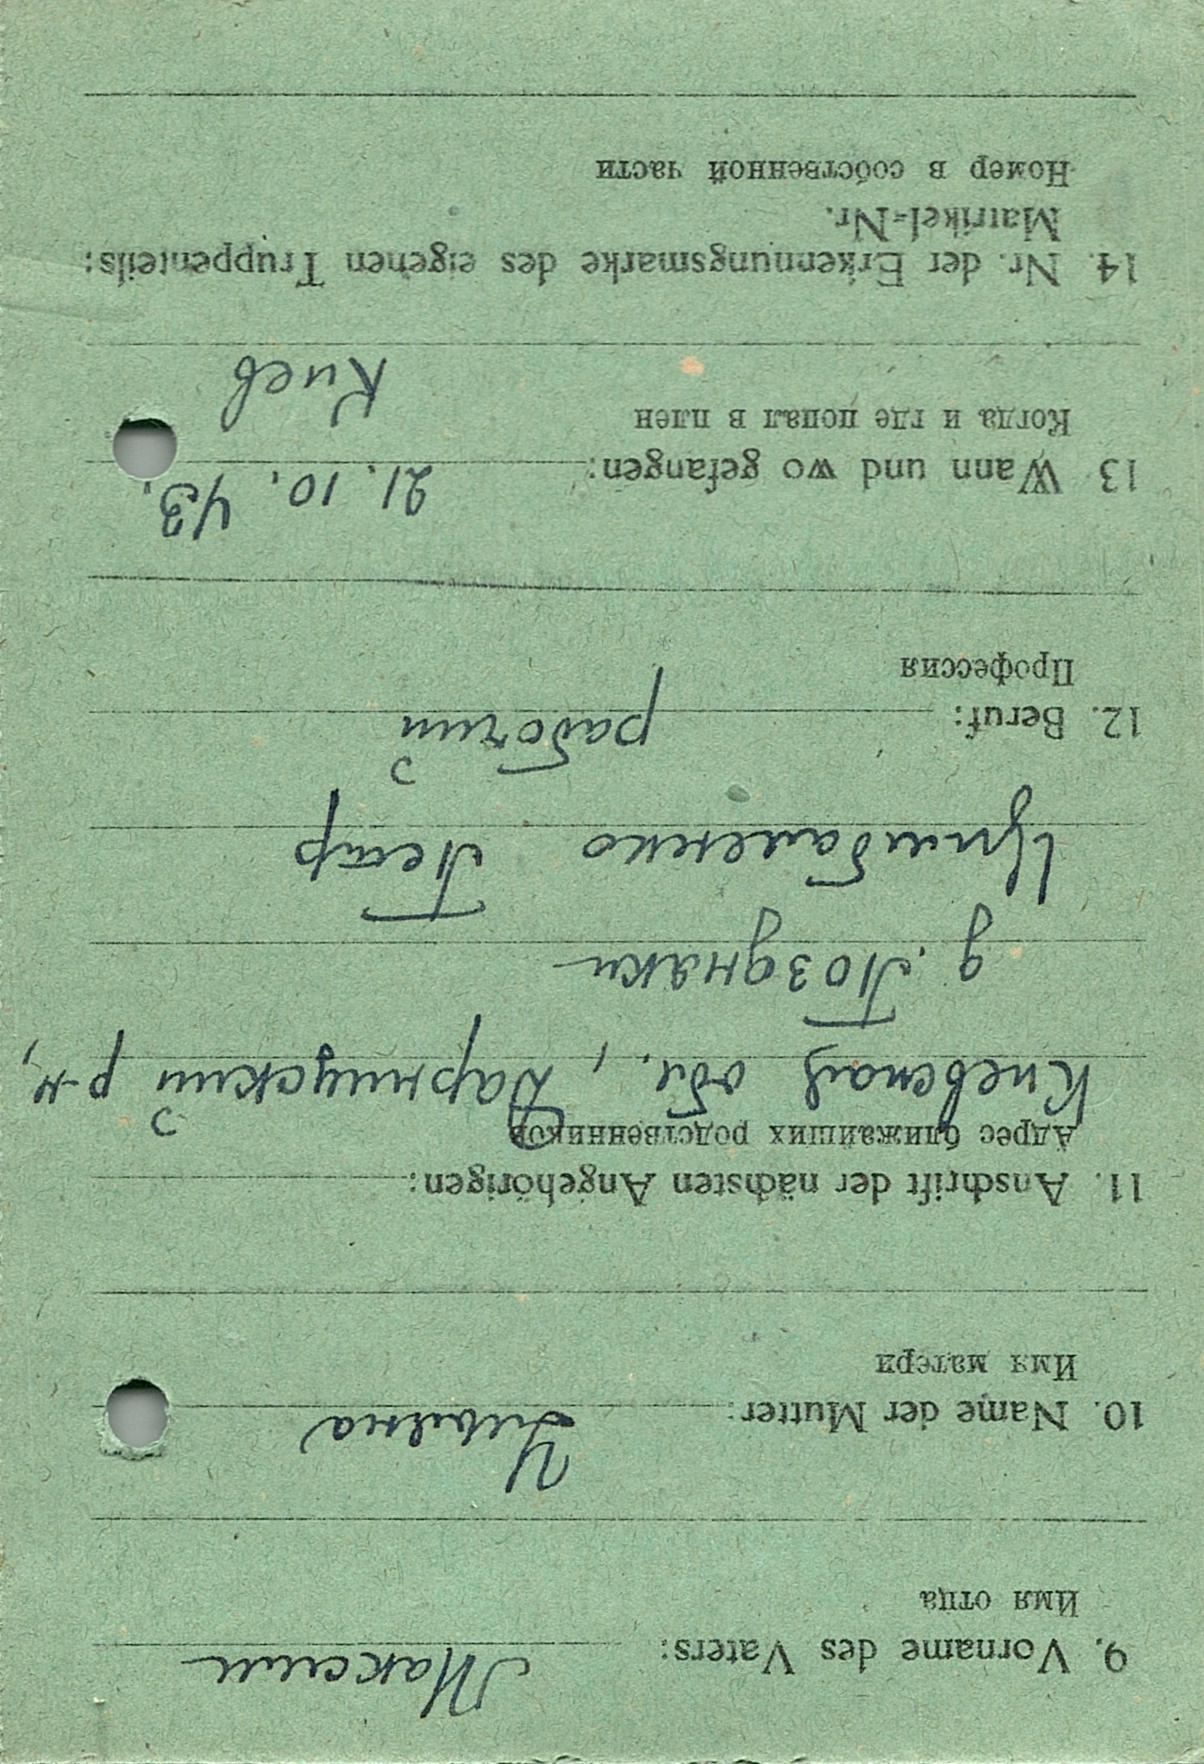 9. Vorname des Vaters: Максим
Имя отца
10. Name der Mutter:
Имя матери
11. Anschrift der nächsten Angehörigen:
Адрес ближайших родственников
Киевская обл., Дарницский р-н,
д. Поздняки
Петр
12. Beruf: рабочий
Профессия
13 Wann und wo gefangen: 21. 10. 43.
Когда и где попал в плен
Киев
14. Nr. der Erkennungsmarke des eigenen Truppenteils:
Matrikel-Nr.
Номер в собственной части